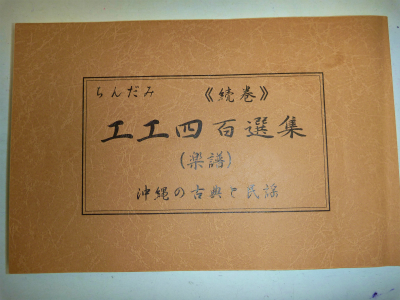 ちんだみ 《続巻》
工工四百選集
(楽譜)
沖縄の古典と民謡